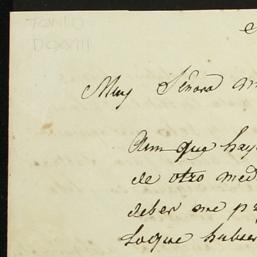 TOMO
Muy Señora m
Aun que hay
de otro med
deber me p
loque hubie